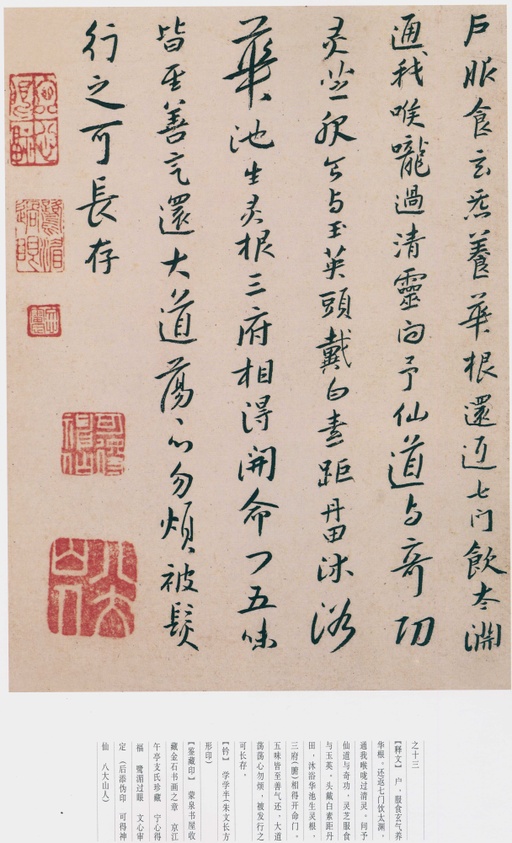 户服食玄炁養華根還返七门飲太淵
通我喉嚨過清靈问予仙道与奇功
灵芝服食与玉英頭戴白素距丹田沐浴
華池生灵根三府相得開命门五味
皆至善气還大道蕩〻心勿煩被髮
行之可長存
八大山人
之十三
【释文】 户，服食玄气养
华根。还返七门饮太渊。
通我喉咙过清灵。问予
仙道与奇功，灵芝服食
与玉英。头戴白素距丹
田，沐浴华池生灵根。
三府(腑)相得开命门。
五味皆至善气还，大道
荡荡心勿烦，被发行之
可长存。
【钤】 学学半(朱文长方
形印)
【鉴藏印】 蒙泉书屋收
藏金石书画之章 京江
午亭支氏珍藏 宁心得
福 鹭湄过眼 文心审
定 (后添伪印 可得神
仙 八大山人)